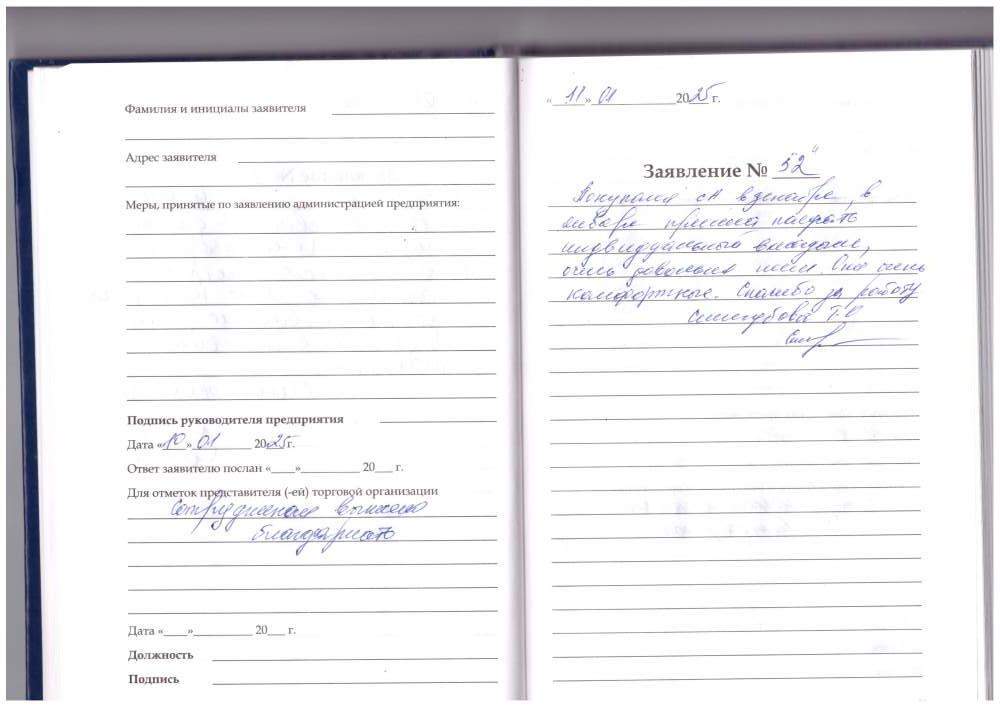 Фамилия и инициалы заявителя
Адрес заявителя
Меры, принятые по заявлению администрацией предприятия:
Подпись руководителя предприятия
Дата «10» 01 2025г.
Ответ заявителю послан «___»__________ 20___ г.
Для отметок представителя (-ей) торговой организации
Сотрудникам вынесена
благодарность
Дата «____»__________ 20___ г.
Должность
Подпись
«11» 01 2025г.
Заявление № "52"
Покупали СА в декабре, в
январе пришла
индивидуальный вкладыш,
очень довольна ими. Они очень
комфортные. Спасибо за работу